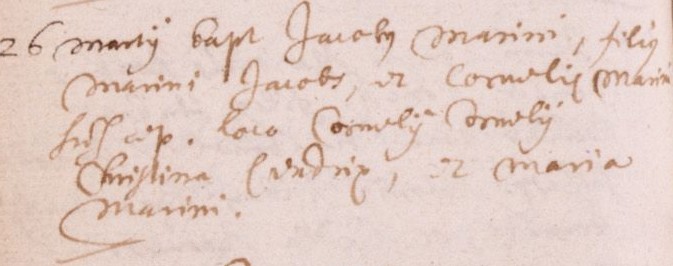 26 martij bapt Jacobus Marini, filius
Marini Jacobs, et Cornelij Marini
suscep. loco Cornelij Cornelij
Christina et Maria
Marini.